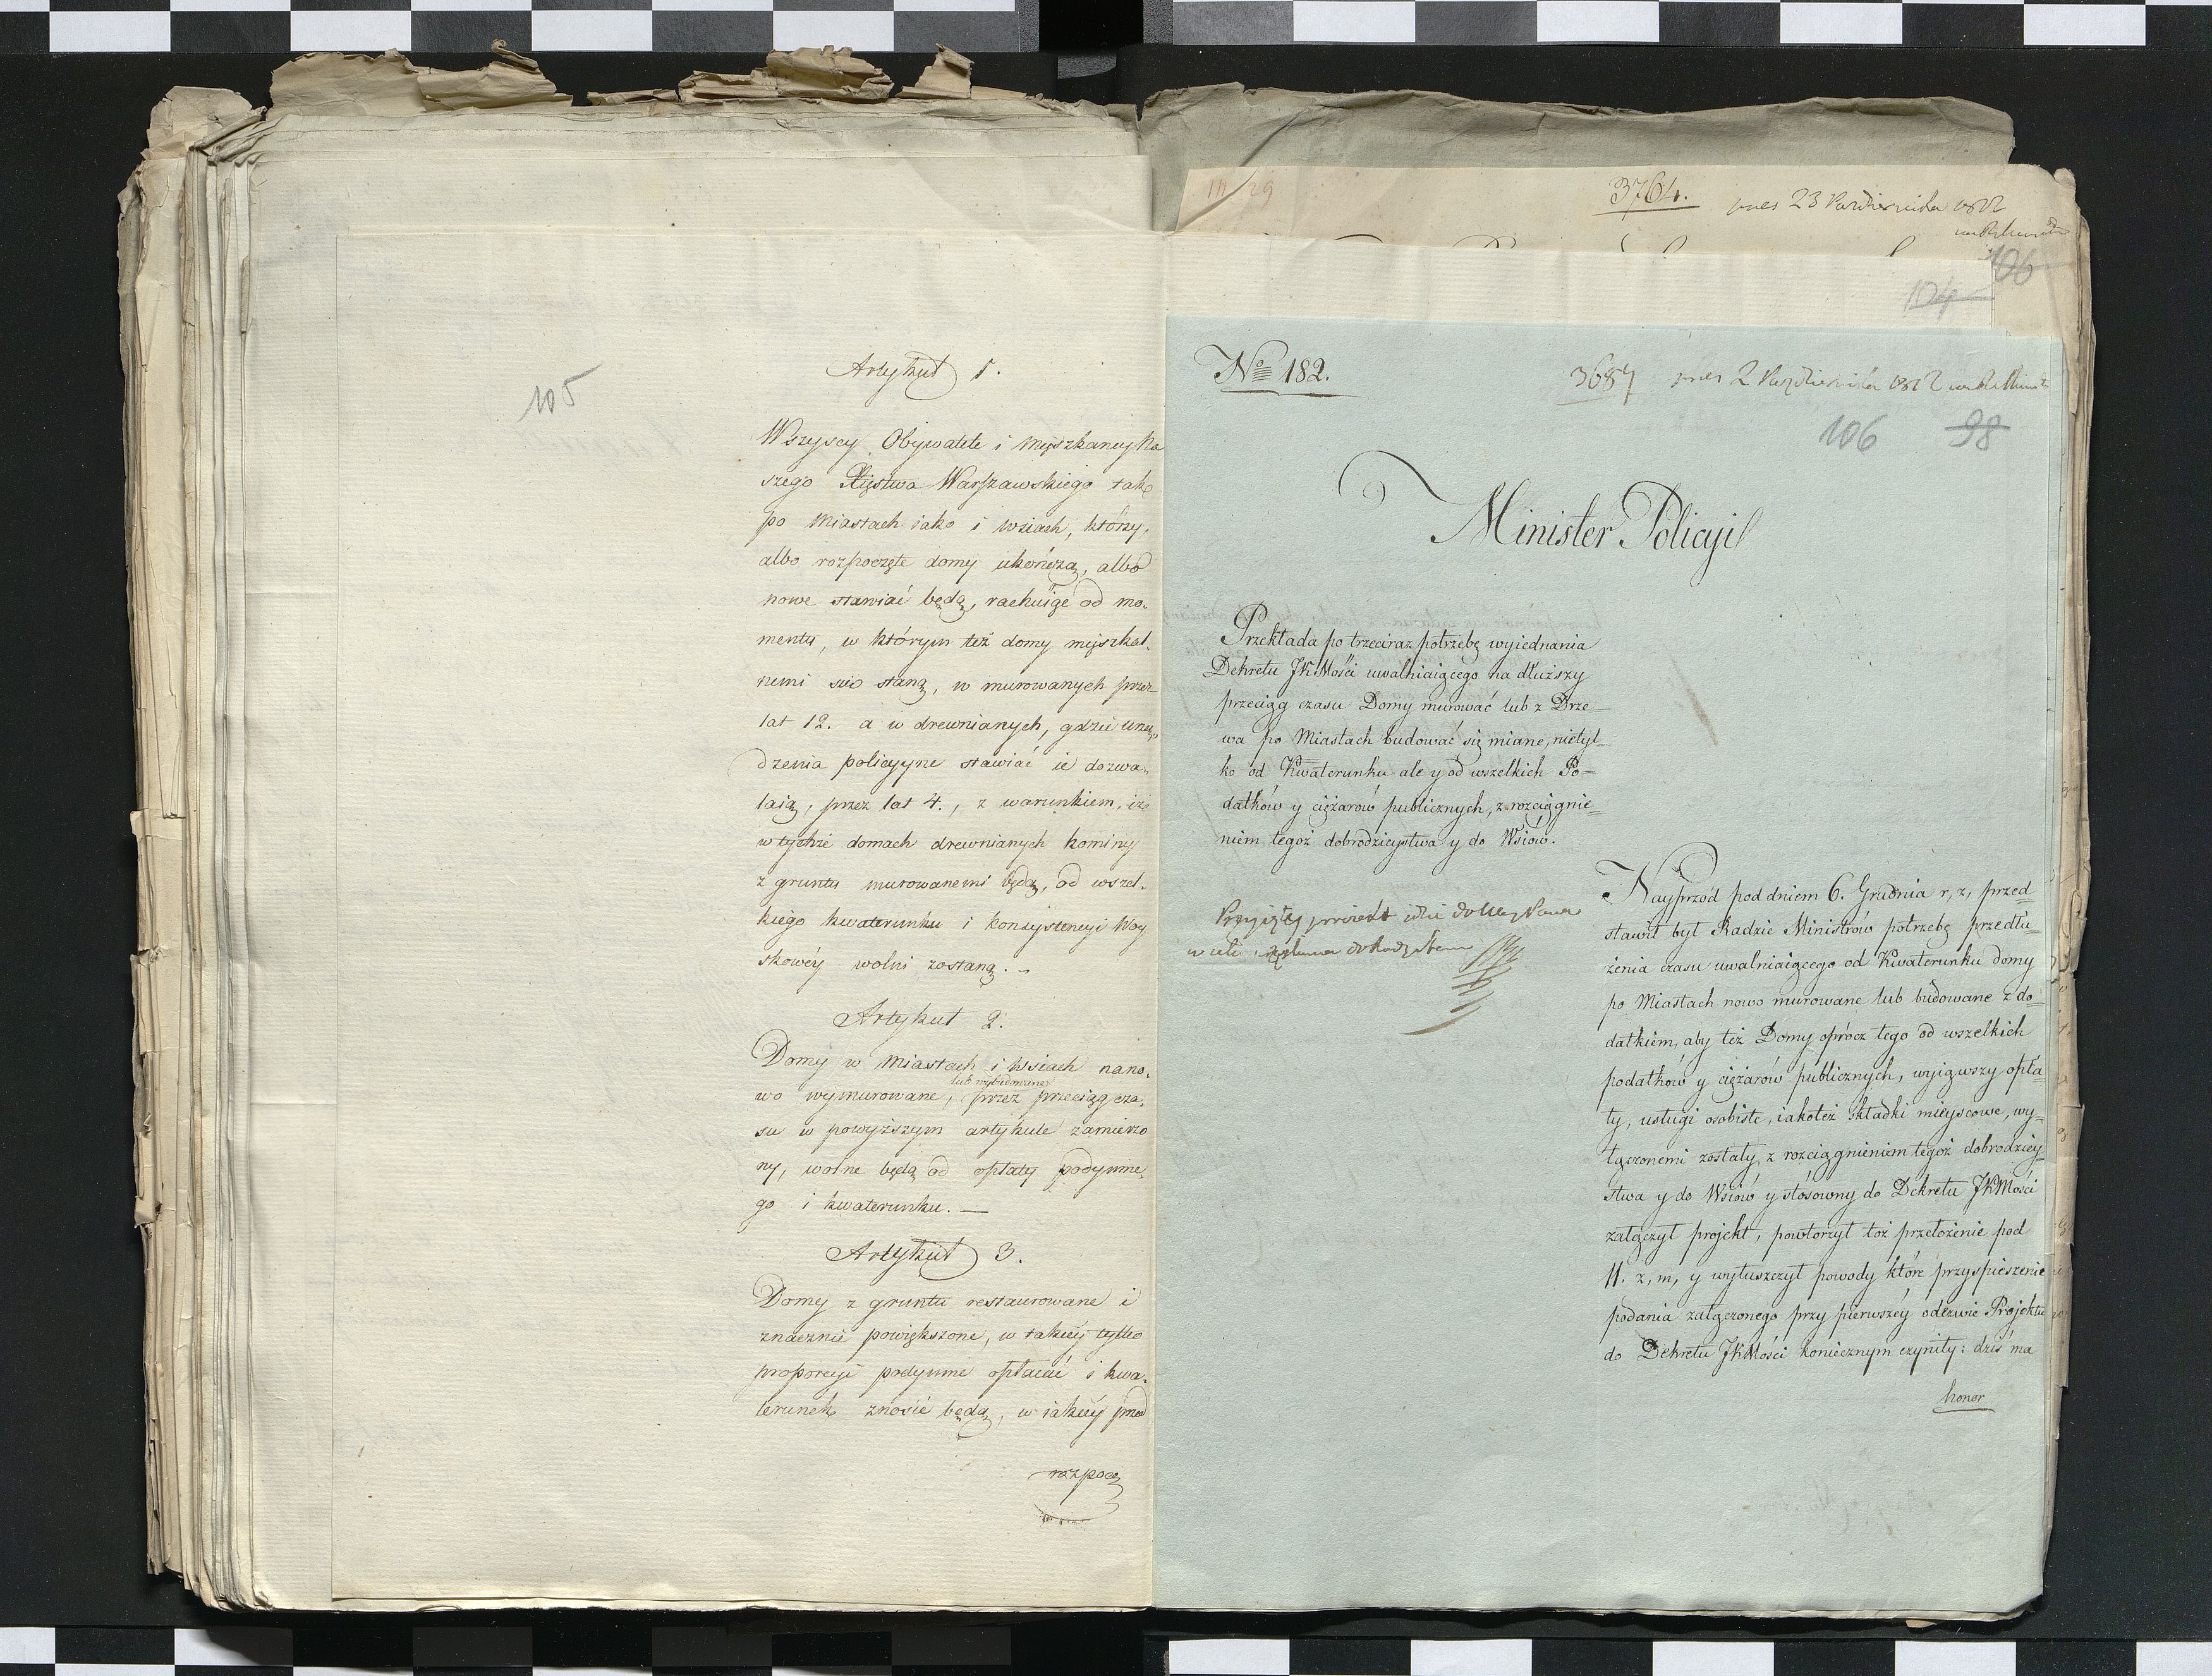 105
Artykuł 1.
Wszyscy Obywatele i Mięszkancy Na
szego Xięstwa Warszawskiego tak
po Miastach iako i wsiach, którzy,
albo rozpoczęte domy ukończą, albo
nowe stawiać będą, rachuiąc od mo-
mentu, w którym też domy mięszkal-
nemi się staną, w murowanych przez
lat 12. a w drewnianych, gdzie urzą-
dzenia policyyne stawiać ie dozwa-
laią, przez lat 4., z warunkiem, iż
w tychże domach drewnianych kominy
z gruntu murowanemi będą, od wszel-
kiego kwaterunku i konsystencyi Woy
skowéy wolni zostaną. -
Artykuł 2.
Domy w Miastach i wsiach nano-
lub wybudowane
wo wymurowane, przez przeciąg cza-
su w powyższym artykule zamierzo
ny, wolne będą od opłaty podymne-
go i kwaterunku. —
Artykuł 3.
Domy z gruntu restaurowane i
znacznie powiększone, w takiéy tylko
proporcyi podymne opłacać i kwa-
terunek znosić będą, w iakiéy przed
rozpoczę
III 29
3764.
23 Października 1812
106
104
No 182.
3687
2 Października 1812
106 98
Minister Policyi
Przekłada po trzeci raz potrzebę wyiednania
Dekretu JKMości uwalniaiącego na dłuższy
przeciąg czasu Domy murować lub z Drze-
wa po Miastach budować się miane, nietyl-
ko od Kwaterunku ale y od wszelkich Po-
datków y ciężarów publicznych, z rozciągnie-
niem tegoż dobrodzieystwa y do Wsiów.
Przyięty proiekt idzie do
Nayprzód pod dniem 6. Grudnia r, z, przed-
stawił był Radzie Ministrów potrzebę przedłu-
żenia czasu uwalniaiącego od Kwaterunku domy
po Miastach nowo murowane lub budowane z do-
datkiem, aby też Domy oprócz tego od wszelkich
podatków y ciężarów publicznych, wyiąwszy opła-
ty, usługi osobiste, iakoteż składki mieyscowe, wy-
łączonemi zostały, z rozciągnieniem tegoż dobrodziey-
stwa y do Wsiów y stosowny do Dekretu JKMości
załączył projekt, powtorzył toż przełożenie pod
11. z, m, y wyłuszczył powody które przyspieszenie
podania załączonego przy pierwszéy odezwie Projektu
do Dekretu JKMości koniecznym czyniły: dziś ma
honor